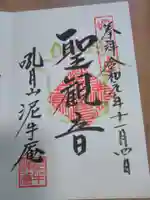 奉拝 令和元年十一月四日
聖観音
吼月山 泥牛庵